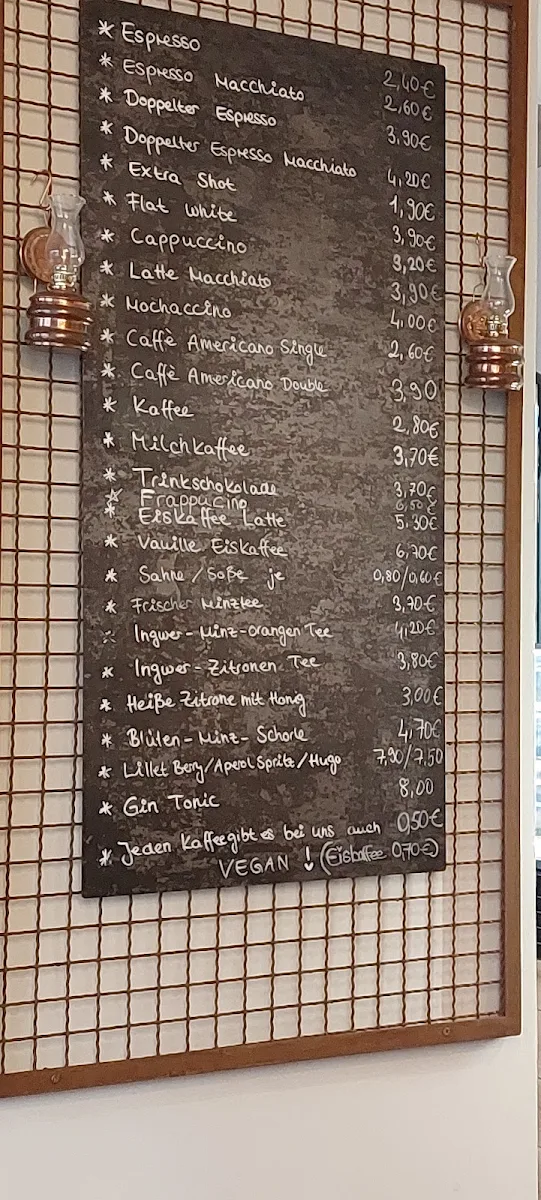 * Espresso 2,40€
* Espresso Macchiato 2,60€
* Doppelter Espresso 3,90€
* Doppelter Espresso Macchiato 4,20€
* Extra Shot 1,90€
* Flat White 3,90€
* Cappuccino 3,20€
* Latte Macchiato 3,90€
* Mochaccino 4,00€
* Caffè Americano Single 2,60€
* Caffè Americano Double 3,90
* Kaffee 2,80€
* Milchkaffee 3,70€
* Trinkschokolade 3,70€
* Frappucino 6,50€
* Eiskaffee Latte 5,30€
* Vanille Eiskaffee 6,70€
* Sahne / Soße je 0,80/0,60€
* Frischer Minztee 3,70€
* Ingwer-Minz-Orangen Tee 4,20€
* Ingwer-Zitronen Tee 3,80€
* Heiße Zitrone mit Honig 3,00€
* Blüten-Minz-Schorle 4,70€
* Lillet Berry/Aperol Spritz/Hugo 7,90/7,50
* Gin Tonic 8,00
* Jeden Kaffee gibt es bei uns auch 0,50€
VEGAN ! (Eiskaffee 0,70€)